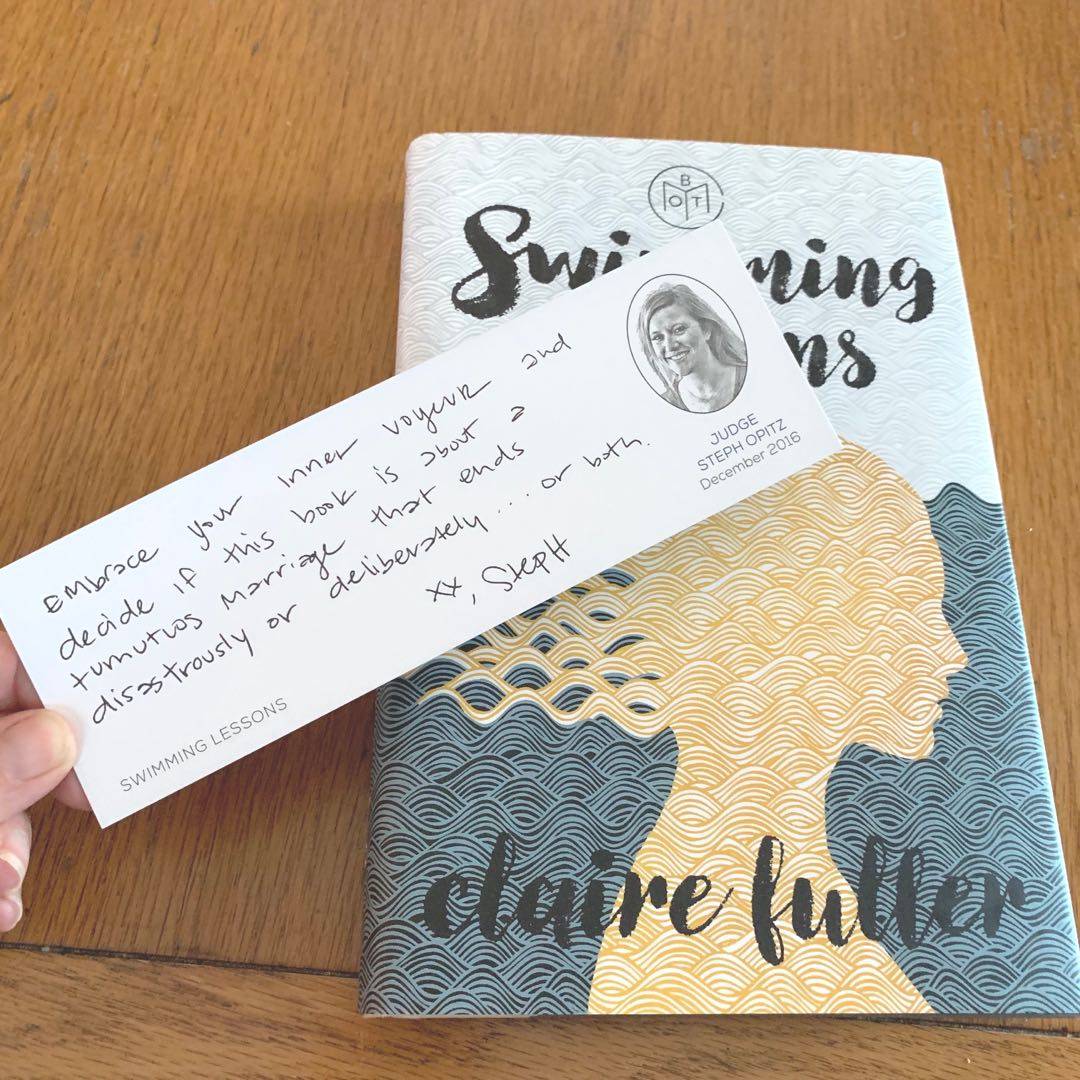 B
O T
Swi ming
ns
Embrace your inner voyeur and
decide if this book is about a
tumutuos marriage that ends
disastrously or deliberately... or both.
xx, StepH
SWIMMING LESSONS
JUDGE
STEPH OPITZ
December 2016
claire fuller